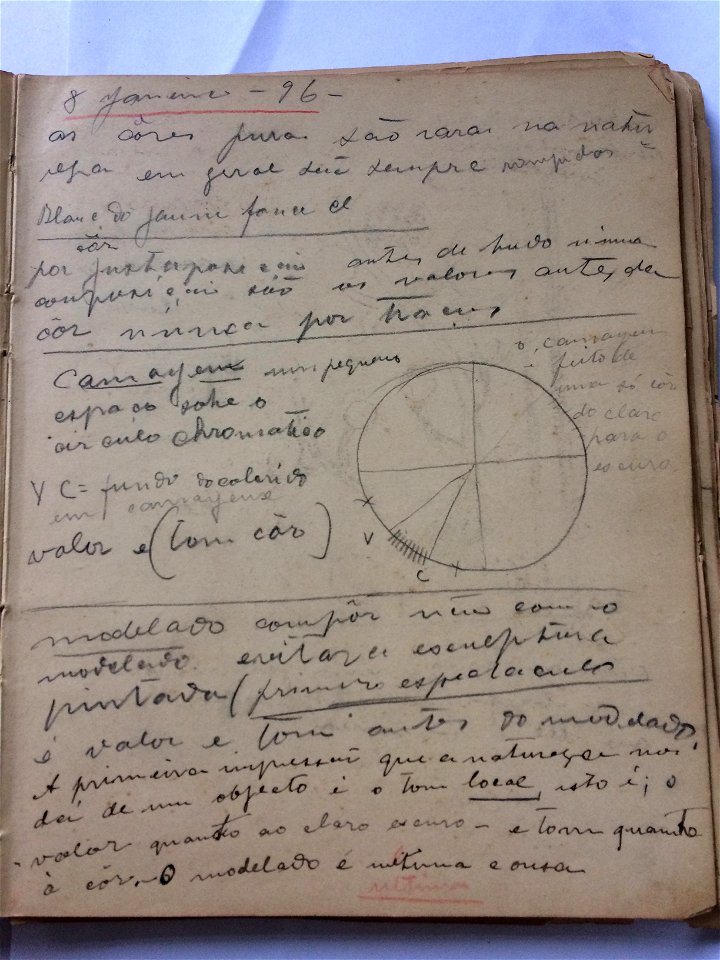 8 Janeiro - 96 -
as côres puras são raras na natu
reza em geral são sempre rompidas
Blanc do jaune foncé
côr
por justaposição antes de tudo n'uma
composição são os valores antes da
côr nunca por traços
Camayeu num pequeno
espaço sobre o
circulo chromatico
o camayeu
feito de
uma só côr
do claro
para o
escuro
V C = fundo do colorido
em camayeux
valor e (tom côr)
V
C
modelado compôr não com o
modelado evitar a esculptura
pintada (primeiro espectaculo
é valor e tom antes do modelado
A primeira impressão que a natureza nos
dá de um objecto é o tom local, isto é, o
valor quanto ao claro escuro - e tom quanto
á côr. - O modelado é ultima cousa
ultima